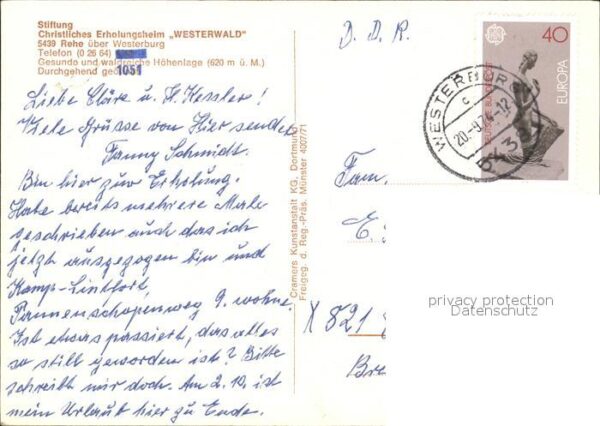 Stiftung
Christliches Erholungsheim „WESTERWALD"
5439 Rehe über Westerburg
Telefon (0 26 64)
Gesunde und waldreiche Höhenlage (620 m ü. M.)
Durchgehend
1051
Liebe Cläre u. H. Kessler!
Viele Grüsse von Hier sendet
Fanny Schmidt.
Bin hier zur Erholung.
Habe bereits mehrere Male
geschrieben auch das ich
jetzt ausgezogen bin und
Kamp-Lintfort,
Tannenschopenweg 9. wohne.
Ist etwas passiert, das alles
so still geworden ist? Bitte
schreibt mir doch. Am 2.10. ist
mein Urlaub hier zu Ende.
Cramers Kunstanstalt KG, Dortmund
Freigeg. d. Reg.-Präs. Münster 4007/71
D. D. R.
40
EUROPA
DEUTSCHE BUNDESPOST
WESTERBURG
c
20.-9.74-12
543
Fam.
E.
X 821
Bre
privacy protection
Datenschutz